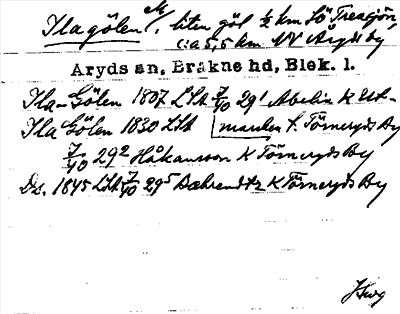 Ilagölen M, liten göl ½ km SÖ Tresjön,
ca 5,5 km NV Åryds by
Aryds sn, Bräkne hd, Blek. l.
Ila-Gölen 1807 LSt 7/40 29¹ Abelin K Ut-
Ila Gölen 1830 LSt marken t. Törneryds By
7/40 29² Håkansson K Törneryds By
Ds. 1845 LSt 7/40 29⁵ Bæhrendtz K Törneryds By